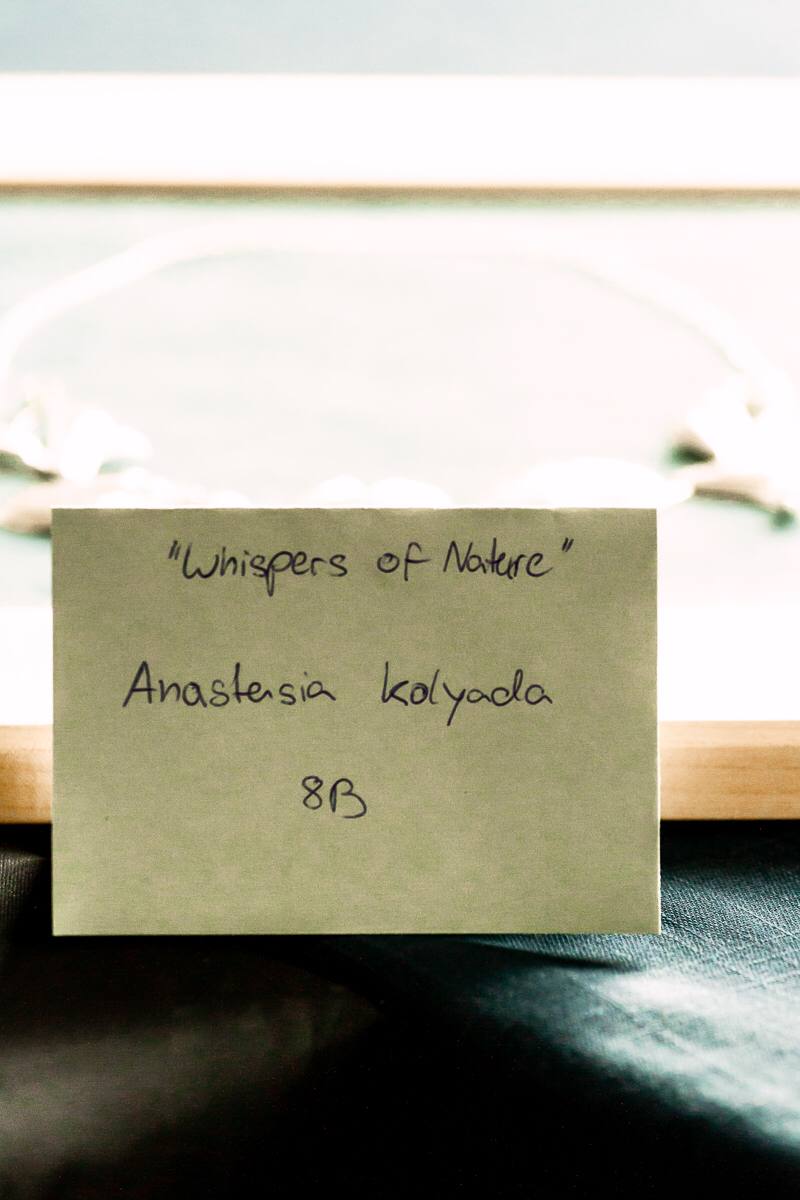 "Whispers of Nature"
Anastasia Kolyada
8B